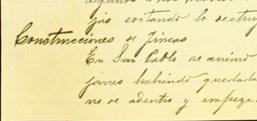 jas evitando lo destruy
Construcciones de Fincas
En San Pablo se animó
jaines habiendo quedado
ne se adentro y empeza